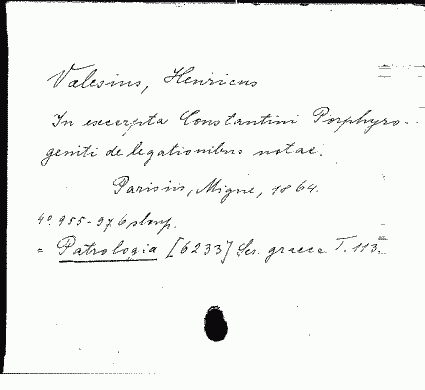 Valesius, Henricus
In excerpta Constantini Porphyro-
geniti de legationibus notae.
Parisiis, Migne, 1864.
4º. 955-976
= Patrologia [6233] Ser. graeca T. 113.